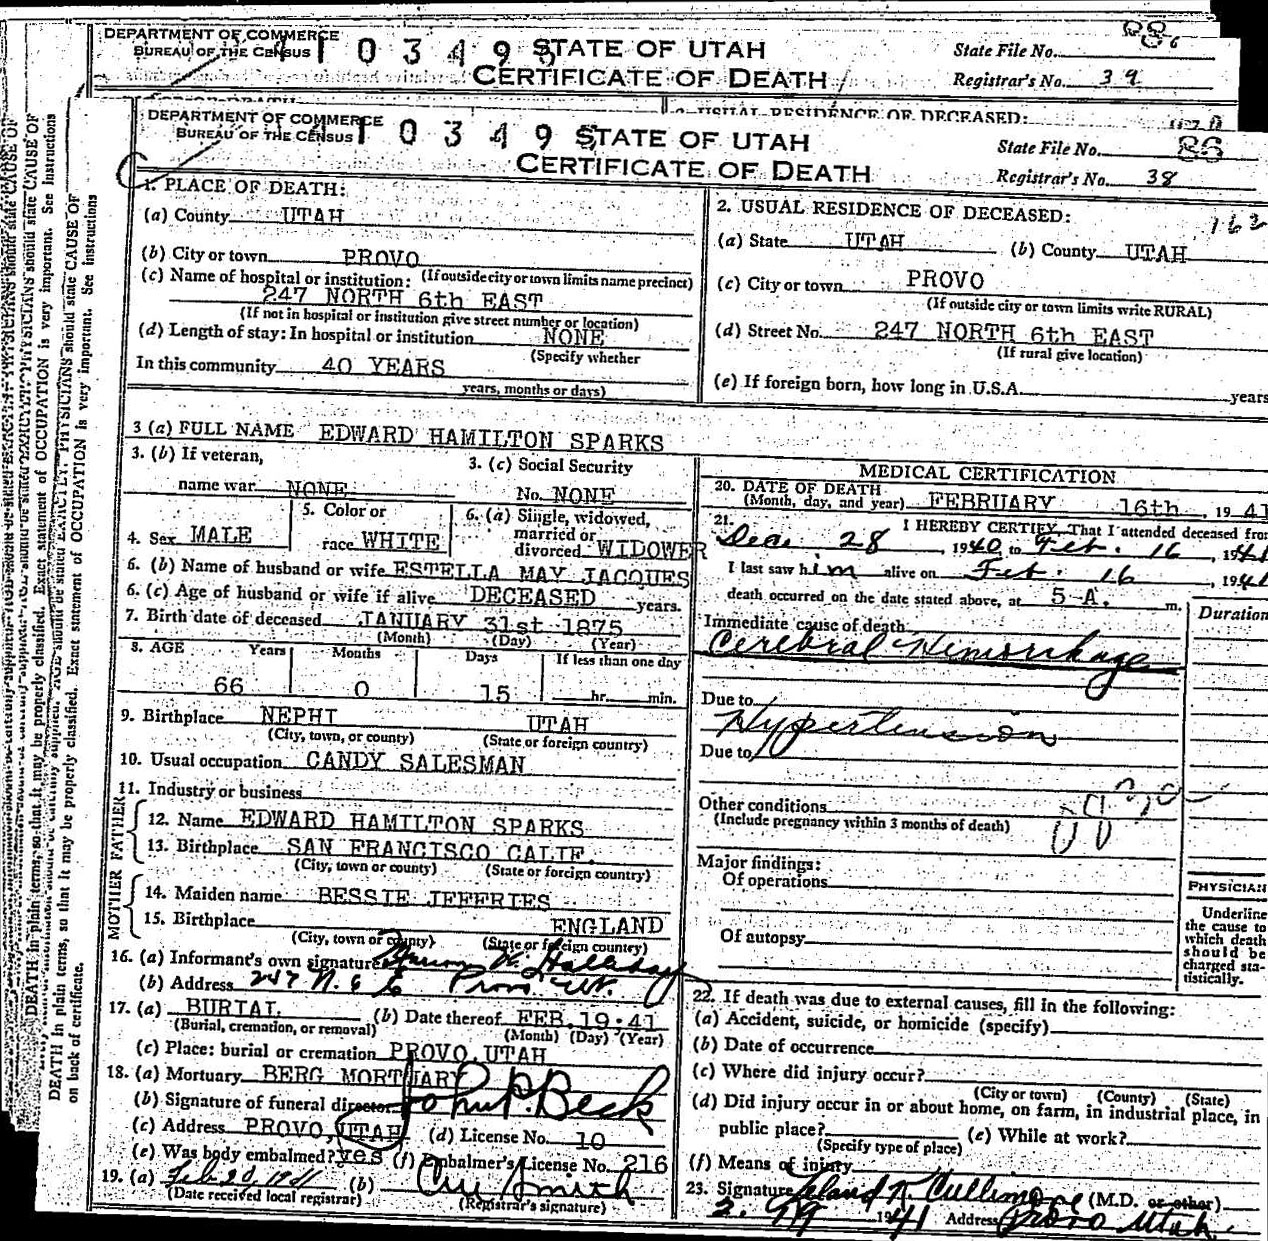 DEPARTMENT OF COMMERCE
BUREAU OF THE CENSUS
STATE OF UTAH
CERTIFICATE OF DEATH
State File No. 86
Registrar's No. 39
2. USUAL RESIDENCE OF DECEASED:
DEPARTMENT OF COMMERCE
BUREAU OF THE CENSUS
1 0 3 4 9 5
STATE OF UTAH
CERTIFICATE OF DEATH
State File No. 86
Registrar's No. 38
1. PLACE OF DEATH:
(a) County UTAH
(b) City or town PROVO
(If outside city or town limits name precinct)
(c) Name of hospital or institution:
247 NORTH 6th EAST
(If not in hospital or institution give street number or location)
(d) Length of stay: In hospital or institution NONE
(Specify whether
In this community 40 YEARS
years, months or days)
2. USUAL RESIDENCE OF DECEASED:
(a) State UTAH (b) County UTAH
(c) City or town PROVO
(If outside city or town limits write RURAL)
(d) Street No. 247 NORTH 6th EAST
(If rural give location)
(e) If foreign born, how long in U.S.A. years
3 (a) FULL NAME EDWARD HAMILTON SPARKS
3. (b) If veteran,
name war NONE
3. (c) Social Security
No. NONE
4. Sex MALE
5. Color or
race WHITE
6. (a) Single, widowed,
married or
divorced WIDOWER
6. (b) Name of husband or wife ESTELLA MAY JACQUES
6. (c) Age of husband or wife if alive DECEASED years.
7. Birth date of deceased JANUARY 31st 1875
(Month) (Day) (Year)
8. AGE Years Months Days If less than one day
66 0 15 hr. min.
9. Birthplace NEPHI UTAH
(City, town, or county) (State or foreign country)
10. Usual occupation CANDY SALESMAN
11. Industry or business
FATHER
12. Name EDWARD HAMILTON SPARKS
13. Birthplace SAN FRANCISCO CALIF.
(City, town or county) (State or foreign country)
MOTHER
14. Maiden name BESSIE JEFFRIES
15. Birthplace ENGLAND
(City, town or county) (State or foreign country)
16. (a) Informant's own signature
(b) Address 247 N. 6 E Provo Ut.
17. (a) BURIAL (b) Date thereof FEB. 19.41
(Burial, cremation, or removal) (Month) (Day) (Year)
(c) Place: burial or cremation PROVO, UTAH
18. (a) Mortuary BERG MORTUARY
(b) Signature of funeral director John P. Beck
(c) Address PROVO, UTAH (d) License No. 10
(e) Was body embalmed? yes (f) Embalmer's License No. 216
19. (a) Feb 20, 1941 (b) Smith
(Date received local registrar) (Registrar's signature)
MEDICAL CERTIFICATION
20. DATE OF DEATH
(Month, day, and year) FEBRUARY 16th, 1941
21. I HEREBY CERTIFY That I attended deceased from
Dec. 28, 1940 to Feb. 16, 1941
I last saw him alive on Feb. 16, 1941
death occurred on the date stated above, at 5 A. m.
Duration
Immediate cause of death
Cerebral Hemorrhage
Due to
Hypertension
Due to
Other conditions
(Include pregnancy within 3 months of death)
Major findings:
Of operations
Of autopsy
PHYSICIAN
Underline
the cause to
which death
should be
charged sta-
tistically.
22. If death was due to external causes, fill in the following:
(a) Accident, suicide, or homicide (specify)
(b) Date of occurrence
(c) Where did injury occur?
(City or town) (County) (State)
(d) Did injury occur in or about home, on farm, in industrial place, in
public place? (e) While at work?
(Specify type of place)
(f) Means of injury
23. Signature Leland K. Cullimore (M.D. or other)
2. 19 1941 Address Provo Utah.
DEATH in plain terms, so that it may be properly classified. Exact statement of OCCUPATION is very important. See Instructions
on back of certificate.